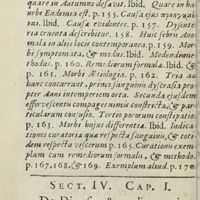 quare in Autumno desævit. Ibid. Quare in ha-
urbe Eudemia est. p. 155. Causæ ejus
ni. Ibid. Causæ evidens. p. 157. Dysinte-
ria cruenta describitur. 158. Huic febri Ano-
mala in aliis locis contemporanea. p. 159. Mor-
bi symptomata, & modus. Ibid. Medendi me-
thodus. p. 160. Remediorum formulæ. Ibid. &
p. 161. Morbi Ætiologia. p. 162. Tria ad
hunc concurrunt, primo sanguinis dyscrasia pro-
pter Anni intemperiem orta. Secunda ejusdem
effervescentis compages nimis constricta, & par-
ticularum confusio. Tertio pororum constipatio.
p. 163. Morbi hujus differentia. Ibid. Indica-
tiones curatoria qua respecta sanguinis, & toti-
dem respectu viscerum p. 165. Curationis exem-
plum cum remediorum formulis, & methodo.
p. 167, 168, & 169. Exemplum aliud. p. 170
SECT. IV. CAP. I.